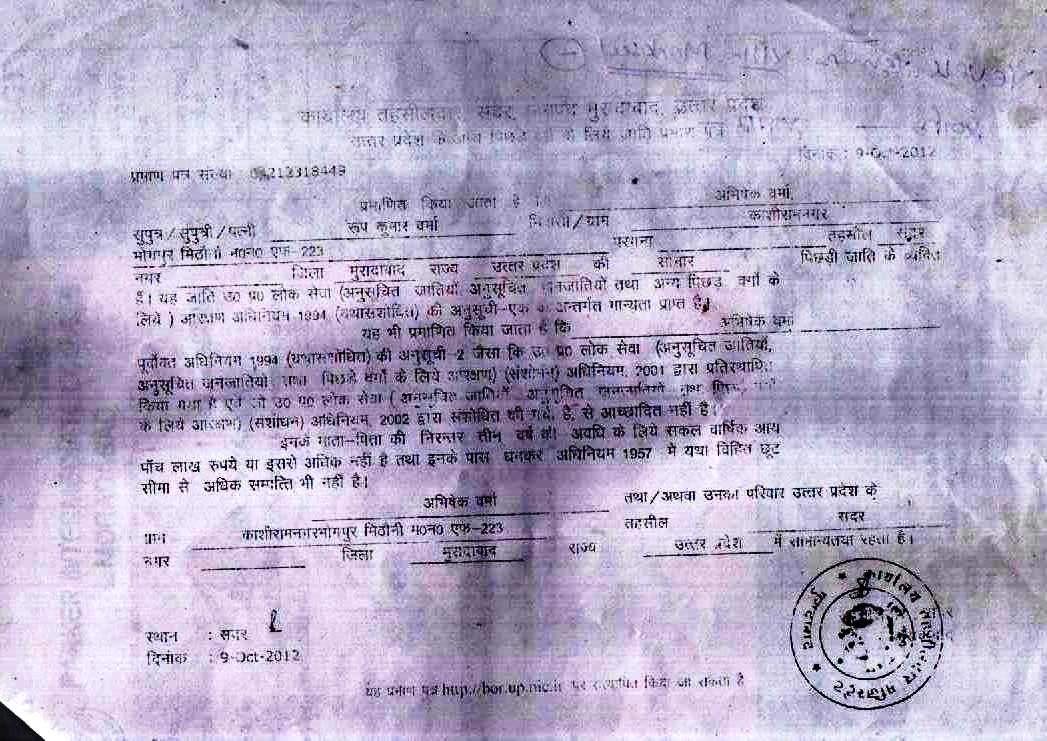 कार्यालय तहसीलदार, सदर, जनपद मुरादाबाद, उत्तर प्रदेश
उत्तर प्रदेश के अन्य पिछड़े वर्गों के लिये जाति प्रमाण पत्र
दिनांक : 9-Oct-2012
प्रमाण पत्र संख्या
प्रमाणित किया जाता है कि अभिषेक वर्मा,
सुपुत्र/सुपुत्री/पत्नी रूप कुमार वर्मा निवासी/ग्राम काशीरामनगर
मोगपुर मिठौनी म0न0 एफ-223 परगना तहसील सदर
नगर जिला मुरादाबाद राज्य उत्तर प्रदेश की सोनार पिछड़ी जाति के व्यक्ति
हैं। यह जाति उ0 प्र0 लोक सेवा (अनुसूचित जातियों, अनुसूचित जनजातियों तथा अन्य पिछड़े वर्गों के
लिये ) आरक्षण अधिनियम 1994 (यथासंशोधित) की अनुसूची-एक के अन्तर्गत मान्यता प्राप्त है।
यह भी प्रमाणित किया जाता है कि अभिषेक वर्मा
पूर्वोक्त अधिनियम 1994 (यथासंशोधित) की अनुसूची-2 जैसा कि उ0 प्र0 लोक सेवा (अनुसूचित जातियों,
अनुसूचित जनजातियों तथा पिछड़े वर्गों के लिये आरक्षण) (संशोधन) अधिनियम, 2001 द्वारा प्रतिस्थापित
किया गया है एवं जो उ0 प्र0 लोक सेवा ( अनुसूचित जातियों, अनुसूचित जनजातियों तथा पिछड़े वर्गों
के लिये आरक्षण) (संशोधन) अधिनियम, 2002 द्वारा संशोधित की गयी है, से आच्छादित नहीं है।
इनके माता-पिता की निरन्तर तीन वर्ष की अवधि के लिये सकल वार्षिक आय
पाँच लाख रुपये या इससे अधिक नहीं है तथा इनके पास धनकर अधिनियम 1957 में यथा विहित छूट
सीमा से अधिक सम्पत्ति भी नहीं है।
अभिषेक वर्मा तथा/अथवा उनका परिवार उत्तर प्रदेश के
ग्राम काशीरामनगरमोगपुर मिठौनी म0न0 एफ-223 तहसील सदर
नगर जिला मुरादाबाद राज्य उत्तर प्रदेश में सामान्यतया रहता है।
स्थान : सदर
दिनांक : 9-Oct-2012
यह प्रमाण पत्र http://bor.up.nic.in पर सत्यापित किया जा सकता है